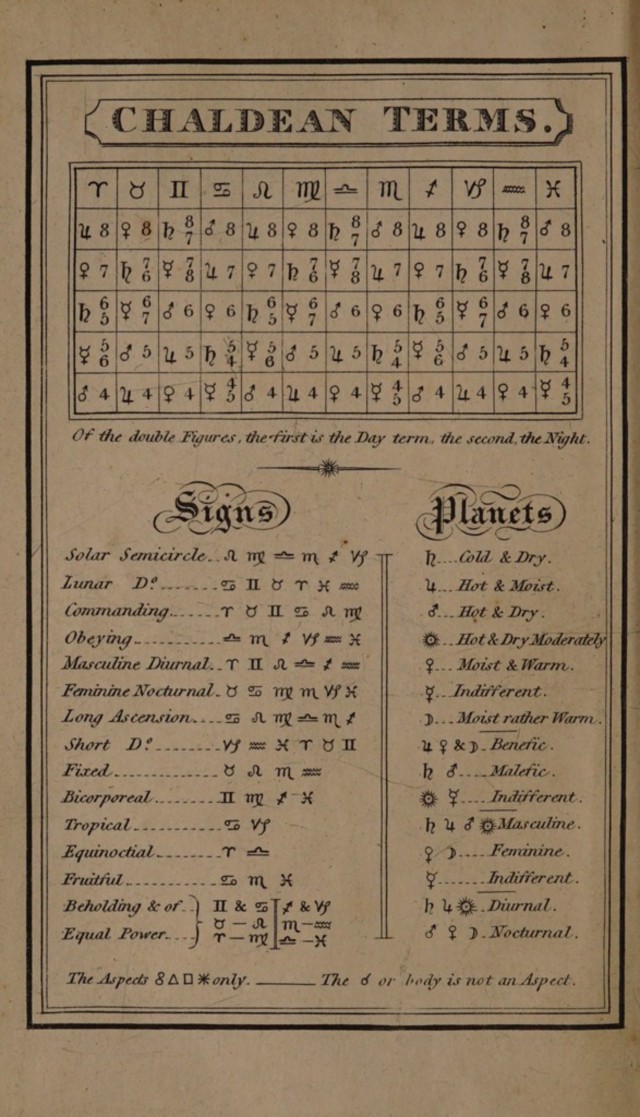 CHALDEAN TERMS.
♈ ♉ ♊ ♋ ♌ ♍ ♎ ♏ ♐ ♑ ♒ ♓
♃ 8 ♀ 8 ♄ 8 7 ♂ 8 ♃ 8 ♀ 8 ♄ 8 7 ♂ 8 ♃ 8 ♀ 8 ♄ 8 7 ♂ 8
♀ 7 ♄ 7 6 ☿ 7 8 ♃ 7 ♀ 7 ♄ 7 6 ☿ 7 8 ♃ 7 ♀ 7 ♄ 7 6 ☿ 7 8 ♃ 7
♄ 6 5 ☿ 6 7 ♂ 6 ♀ 6 ♄ 6 5 ☿ 6 7 ♂ 6 ♀ 6 ♄ 6 5 ☿ 6 7 ♂ 6 ♀ 6
☿ 5 6 ♂ 5 ♃ 5 ♄ 5 4 ☿ 5 6 ♂ 5 ♃ 5 ♄ 5 4 ☿ 5 6 ♂ 5 ♃ 5 ♄ 5 4
♂ 4 ♃ 4 ♀ 4 ☿ 4 5 ♂ 4 ♃ 4 ♀ 4 ☿ 4 5 ♂ 4 ♃ 4 ♀ 4 ☿ 4 5
Of the double Figures, the first is the Day term, the second, the Night.
Signs
Solar Semicircle.. ♌ ♍ ♎ ♏ ♐ ♑
Lunar Do....... ♋ ♊ ♉ ♈ ♓ ♒
Commanding...... ♈ ♉ ♊ ♋ ♌ ♍
Obeying........... ♎ ♏ ♐ ♑ ♒ ♓
Masculine Diurnal.. ♈ ♊ ♌ ♎ ♐ ♒
Feminine Nocturnal. ♉ ♋ ♍ ♏ ♑ ♓
Long Ascension.... ♋ ♌ ♍ ♎ ♏ ♐
Short Do........ ♑ ♒ ♓ ♈ ♉ ♊
Fixed............. ♉ ♌ ♏ ♒
Bicorporeal........ ♊ ♍ ♐ ♓
Tropical........... ♋ ♑
Equinoctial........ ♈ ♎
Fruitful........... ♋ ♏ ♓
Beholding & of.. } ♊ & ♋ | ♐ & ♑
♉ — ♌ | ♏ — ♒
Equal Power.... } ♈ — ♍ | ♎ — ♓
Planets
♄.... Cold & Dry.
♃... Hot & Moist.
♂... Hot & Dry.
☉... Hot & Dry Moderately
♀... Moist & Warm.
☿... Indifferent.
☽... Moist rather Warm.
♃ ♀ & ☽. Benefic.
♄ ♂.... Malefic.
☉ ☿.... Indifferent.
♄ ♃ ♂ ☉ Masculine.
♀ ☽.... Feminine.
☿....... Indifferent.
♄ ♃ ☉. Diurnal.
♂ ♀ ☽. Nocturnal.
The Aspects ☍ △ □ ⚹ only. ——— The ☌ or body is not an Aspect.